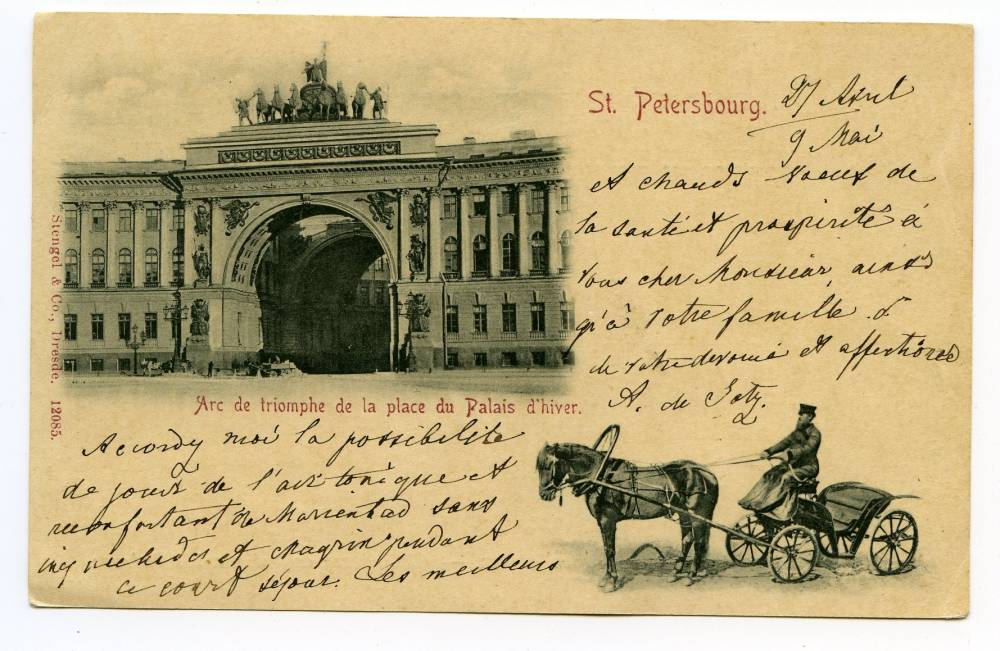 St. Petersbourg.
27 Avril
9 Mai
Stengel & Co., Dresde. 12085.
Arc de triomphe de la place du Palais d'hiver.
Accordez moi la possibilite
de jouir de l'air tonique et
reconfortant de Marienbad sans
inquietudes et chagrin pendant
ce court séjour. Les meilleurs
et chauds voeux de
la santé et prospérité à
vous cher Monsieur, ainsi
qu'à votre famille
de votre devoué et affectionné
A. de